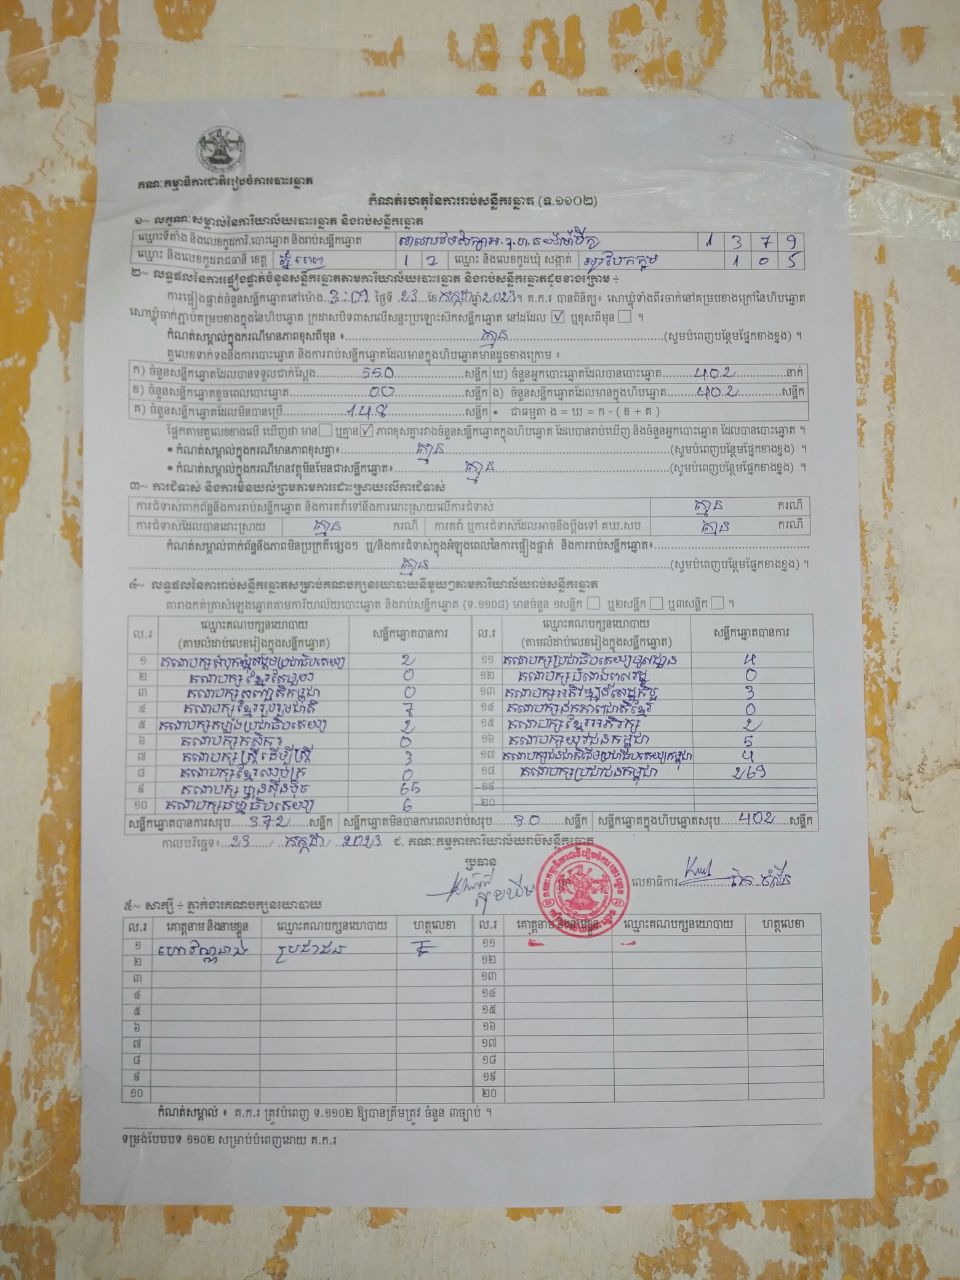 គណៈកម្មាធិការជាតិរៀបចំការបោះឆ្នោត
កំណត់ហេតុនៃការរាប់សន្លឹកឆ្នោត (ទ.១១០២)
១~ លក្ខណៈសម្គាល់នៃការិយាល័យបោះឆ្នោត និងរាប់សន្លឹកឆ្នោត
ឈ្មោះទីតាំង និងលេខកូដការិ.បោះឆ្នោត និងរាប់សន្លឹកឆ្នោត 1 3 7 9
ឈ្មោះ និងលេខកូដរាជធានី ខេត្ត ភ្នំពេញ 1 2 ឈ្មោះ និងលេខកូដឃុំ សង្កាត់ 1 0 5
២~ លទ្ធផលនៃការផ្ទៀងផ្ទាត់ចំនួនសន្លឹកឆ្នោតតាមការិយាល័យបោះឆ្នោត និងរាប់សន្លឹកឆ្នោតដូចខាងក្រោម ៖
ការផ្ទៀងផ្ទាត់ចំនួនសន្លឹកឆ្នោតនៅម៉ោង ថ្ងៃទី 23 ខែ កក្កដា ឆ្នាំ 2023។ គ.ក.រ បានពិនិត្យ៖ សោឃ្មុំទាំងពីរចាក់នៅគម្របខាងក្រៅនៃហិបឆ្នោត
សោឃ្មុំចាក់ភ្ជាប់គម្របខាងក្នុងនៃហិបឆ្នោត ក្រដាសបិទពាសលើសន្ទះប្រឡោះស៊កសន្លឹកឆ្នោត នៅដដែល ☑ ឬខុសពីមុន ☐ ។
កំណត់សម្គាល់ក្នុងករណីមានភាពខុសពីមុន ៖ គ្មាន (សូមបំពេញបន្ថែមផ្នែកខាងខ្នង) ។
តួលេខទាក់ទងនឹងការបោះឆ្នោត និងការរាប់សន្លឹកឆ្នោតដែលមានក្នុងហិបឆ្នោតមានដូចខាងក្រោម ៖
ក) ចំនួនសន្លឹកឆ្នោតដែលបានទទួលជាក់ស្តែង 550 សន្លឹក ឃ) ចំនួនអ្នកបោះឆ្នោតដែលបានបោះឆ្នោត 402 នាក់
ខ) ចំនួនសន្លឹកឆ្នោតខូចពេលបោះឆ្នោត 00 សន្លឹក ង) ចំនួនសន្លឹកឆ្នោតដែលមានក្នុងហិបឆ្នោត 402 សន្លឹក
គ) ចំនួនសន្លឹកឆ្នោតដែលមិនបានប្រើ 148 សន្លឹក • ជាធម្មតា ង = ឃ = ក - ( ខ + គ )
ផ្អែកតាមតួលេខខាងលើ ឃើញថា មាន ☐ ឬគ្មាន ☑ ភាពខុសគ្នារវាងចំនួនសន្លឹកឆ្នោតក្នុងហិបឆ្នោត ដែលបានរាប់ឃើញ និងចំនួនអ្នកបោះឆ្នោត ដែលបានបោះឆ្នោត ។
• កំណត់សម្គាល់ក្នុងករណីមានភាពខុសគ្នា៖ គ្មាន (សូមបំពេញបន្ថែមផ្នែកខាងខ្នង) ។
• កំណត់សម្គាល់ក្នុងករណីមានវត្ថុមិនមែនជាសន្លឹកឆ្នោត៖ គ្មាន (សូមបំពេញបន្ថែមផ្នែកខាងខ្នង) ។
៣~ ការជំទាស់ និងការមិនយល់ព្រមតាមការដោះស្រាយលើការជំទាស់
ការជំទាស់ពាក់ព័ន្ធនឹងការរាប់សន្លឹកឆ្នោត និងការតវ៉ាទៅនឹងការដោះស្រាយលើការជំទាស់ គ្មាន ករណី
ការជំទាស់ដែលបានដោះស្រាយ គ្មាន ករណី ការតវ៉ា ឬការជំទាស់ដែលអាចនឹងប្តឹងទៅ គឃ.សប គ្មាន ករណី
កំណត់សម្គាល់ពាក់ព័ន្ធនឹងភាពមិនប្រក្រតីផ្សេងៗ ឬ/និងការជំទាស់ក្នុងអំឡុងពេលនៃការផ្ទៀងផ្ទាត់ និងការរាប់សន្លឹកឆ្នោត៖
គ្មាន (សូមបំពេញបន្ថែមផ្នែកខាងខ្នង) ។
៤~ លទ្ធផលនៃការរាប់សន្លឹកឆ្នោតសម្រាប់គណបក្សនយោបាយនីមួយៗតាមការិយាល័យរាប់សន្លឹកឆ្នោត
តារាងកត់ត្រាសំឡេងឆ្នោតតាមការិយាល័យបោះឆ្នោត និងរាប់សន្លឹកឆ្នោត (ទ.១១០៨) មានចំនួន ១សន្លឹក ☐ ឬ២សន្លឹក ☐ ឬ៣សន្លឹក ☐ ។
ល.រ ឈ្មោះគណបក្សនយោបាយ (តាមលំដាប់លេខរៀងក្នុងសន្លឹកឆ្នោត) សន្លឹកឆ្នោតបានការ ល.រ ឈ្មោះគណបក្សនយោបាយ (តាមលំដាប់លេខរៀងក្នុងសន្លឹកឆ្នោត) សន្លឹកឆ្នោតបានការ
១ គណបក្សសំបុកឃ្មុំសង្គមប្រជាធិបតេយ្យ 2 ១១ 4
២ គណបក្សខ្មែរតែមួយ 0 ១២ 0
៣ គណបក្សសញ្ជាតិកម្ពុជា 0 ១៣ 3
៤ គណបក្សខ្មែររួបរួមជាតិ 7 ១៤ គណបក្សឯកភាពជាតិខ្មែរ 0
៥ គណបក្សកម្លាំងប្រជាធិបតេយ្យ 2 ១៥ គណបក្សខ្មែរអភិរក្ស 2
៦ គណបក្សកសិករ 0 ១៦ គណបក្សយុវជនកម្ពុជា 5
៧ គណបក្សស្ត្រីដើម្បីស្ត្រី 3 ១៧ 4
៨ គណបក្សខ្មែរឈប់ក្រ 0 ១៨ គណបក្សប្រជាជនកម្ពុជា 269
៩ គណបក្សហ៊្វុនស៊ិនប៉ិច 65 ១៩
១០ គណបក្សធម្មាធិបតេយ្យ 6 ២០
សន្លឹកឆ្នោតបានការសរុប 372 សន្លឹក សន្លឹកឆ្នោតមិនបានការពេលរាប់សរុប 30 សន្លឹក សន្លឹកឆ្នោតក្នុងហិបឆ្នោតសរុប 402 សន្លឹក
កាលបរិច្ឆេទ៖ 23 / កក្កដា / 2023 ជ. គណៈកម្មការការិយាល័យរាប់សន្លឹកឆ្នោត
ប្រធាន
លេខាធិការ
៥~ សាក្សី ៖ ភ្នាក់ងារគណបក្សនយោបាយ
ល.រ គោត្តនាម និងនាមខ្លួន ឈ្មោះគណបក្សនយោបាយ ហត្ថលេខា ល.រ គោត្តនាម និងនាមខ្លួន ឈ្មោះគណបក្សនយោបាយ ហត្ថលេខា
១ ១១
២ ប្រជាជន ១២
៣ ១៣
៤ ១៤
៥ ១៥
៦ ១៦
៧ ១៧
៨ ១៨
៩ ១៩
១០ ២០
កំណត់សម្គាល់ ៖ គ.ក.រ ត្រូវបំពេញ ទ.១១០២ ឱ្យបានត្រឹមត្រូវ ចំនួន ៣ច្បាប់ ។
ទម្រង់បែបបទ ១១០២ សម្រាប់បំពេញដោយ គ.ក.រ